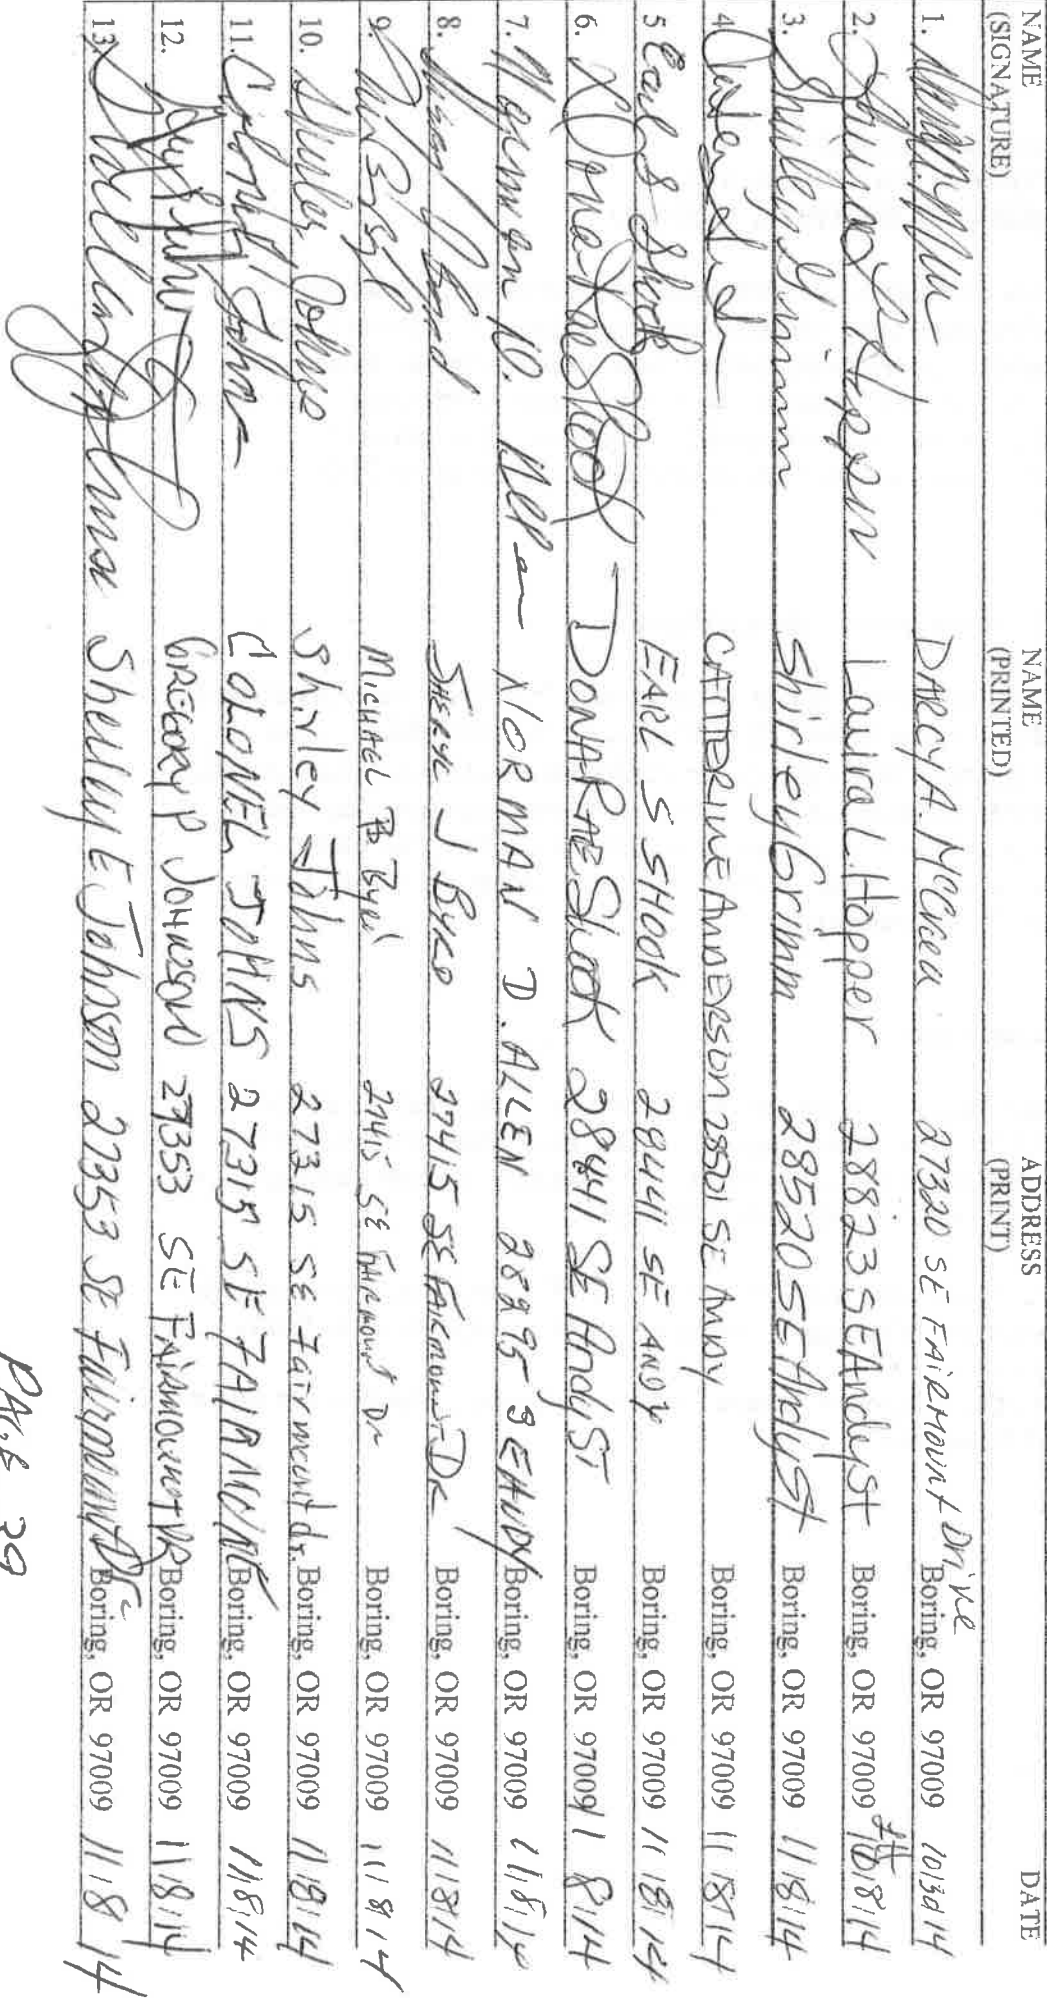 NAME NAME ADDRESS DATE
(SIGNATURE) (PRINTED) (PRINT)
1. DARCY A. MCCrea 27320 SE FAIRMOUNT Drive Boring, OR 97009 10/30/14
2. Laura L. Hopper Laura L. Hopper 28823 SE Andy St Boring, OR 97009 11/8/14
3. Shirley Grimm Shirley Grimm 28520 SE Andy St Boring, OR 97009 11/8/14
4 CATHERINE ANDERSON 28501 SE Andy Boring, OR 97009 11/8/14
5 Earl S Shook EARL S SHOOK 28441 SE ANDY Boring, OR 97009 11/8/14
6. Dona Rae Shook DONA RAE Shook 28441 SE Andy ST Boring, OR 97009 11/8/14
7. Norman D. Allen NORMAN D. ALLEN 28295 SE ANDY Boring, OR 97009 11/8/14
8. SHERYL J BYRD 27415 SE FAIRMOUNT DR Boring, OR 97009 11/8/14
9. MICHAEL Byrd 27415 SE FAIRMOUNT Dr Boring, OR 97009 11/8/14
10. Shirley Johns Shirley Johns 27315 SE Fairmount dr. Boring, OR 97009 11/8/14
11. Colonel Johns COLONEL JOHNS 27315 SE FAIRMOUNT Boring, OR 97009 11/8/14
12. GREGORY P JOHNSON 27353 SE FAIRMOUNT DR Boring, OR 97009 11/8/14
13. Shelly E Johnson 27353 SE Fairmount Dr Boring, OR 97009 11/8/14
PAGE 39